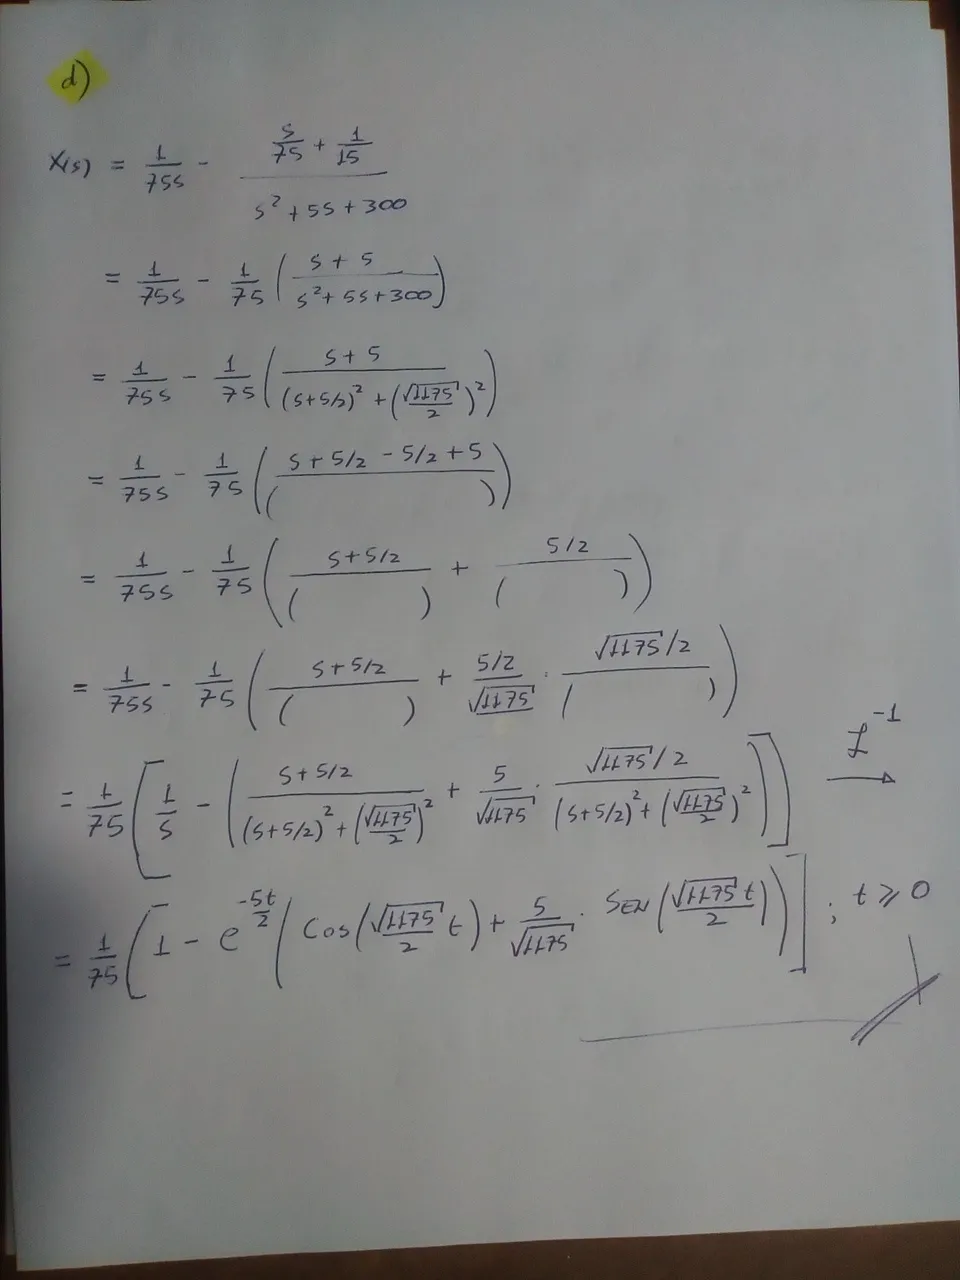 d)
X(s) = 1/75s - (s/75 + 1/15)/(s² + 5s + 300)
= 1/75s - 1/75 ((s + 5)/(s² + 5s + 300))
= 1/75s - 1/75 ((s + 5)/((s+5/2)² + (√1175/2)²))
= 1/75s - 1/75 ((s + 5/2 - 5/2 + 5)/( ))
= 1/75s - 1/75 ((s+5/2)/( ) + (5/2)/( ))
= 1/75s - 1/75 ((s+5/2)/( ) + (5/2)/√1175 · (√1175/2)/( ))
= 1/75 [1/s - ((s+5/2)/((s+5/2)² + (√1175/2)²) + 5/√1175 · (√1175/2)/((s+5/2)² + (√1175/2)²))] ℒ⁻¹ →
= 1/75 [1 - e^(-5t/2) (Cos(√1175/2 t) + 5/√1175 · SEN(√1175 t/2))] ; t ≥ 0